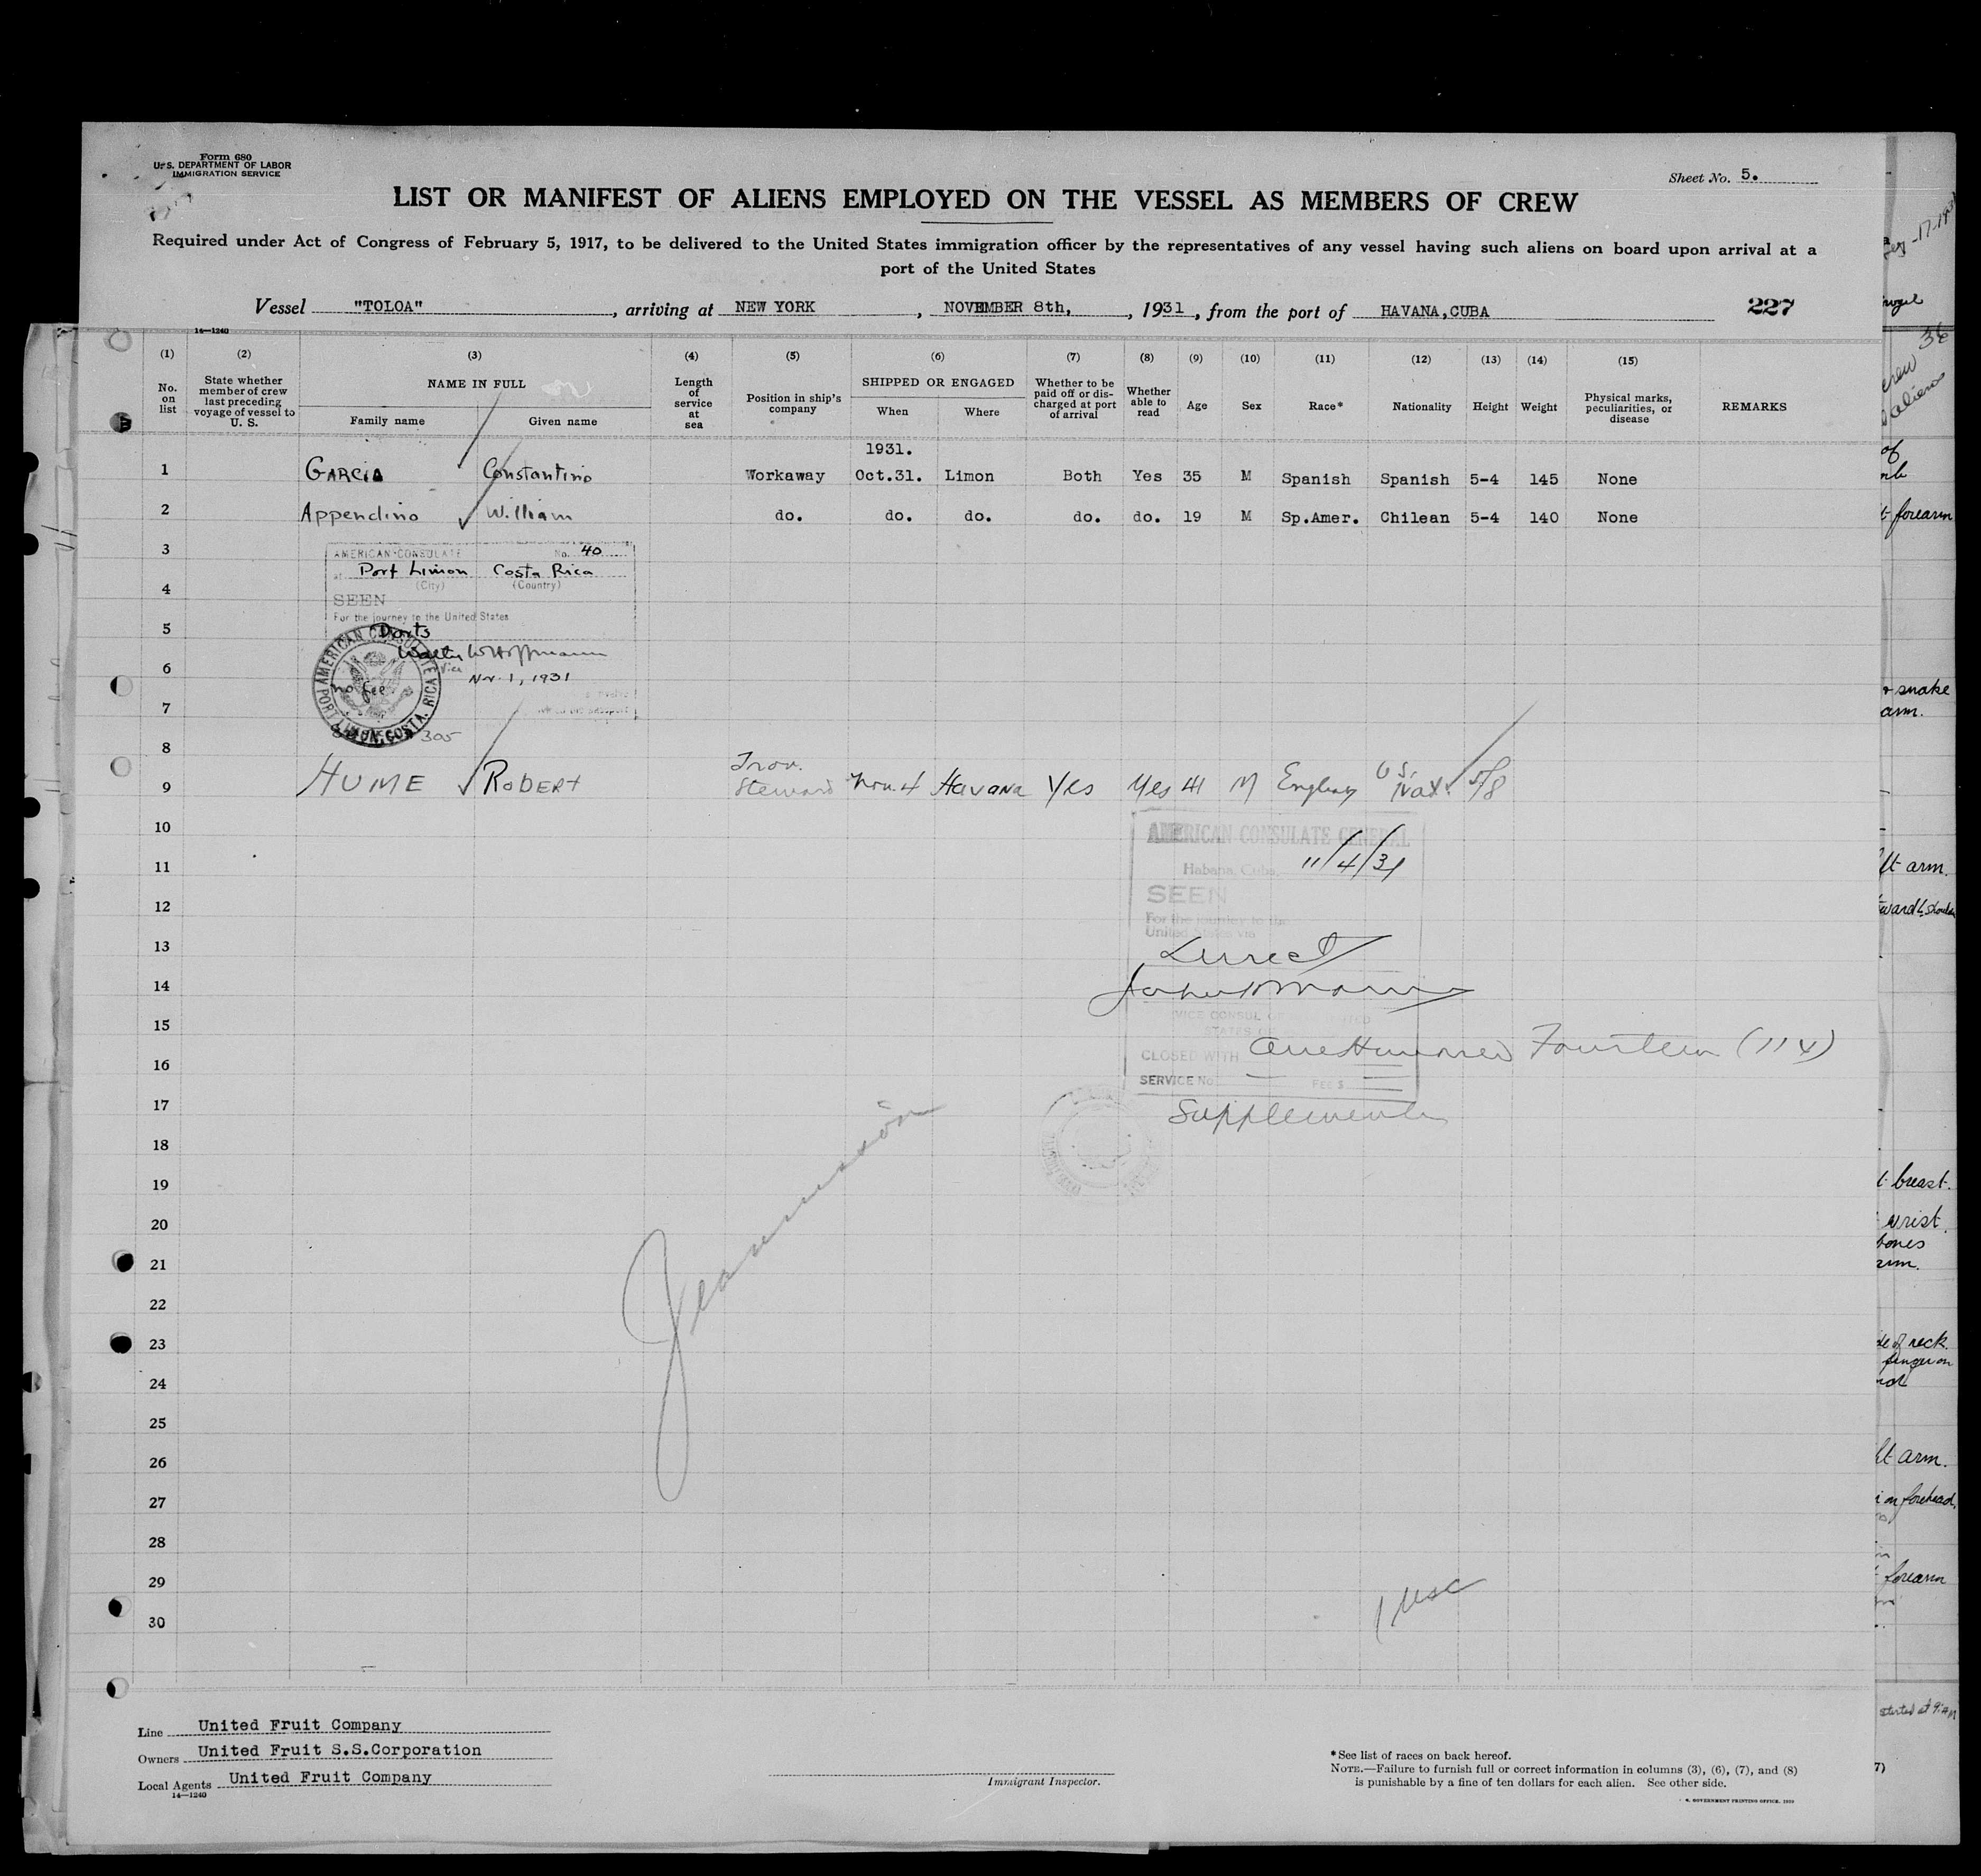 Form 680
U. S. DEPARTMENT OF LABOR
IMMIGRATION SERVICE
Sheet No. 5.
LIST OR MANIFEST OF ALIENS EMPLOYED ON THE VESSEL AS MEMBERS OF CREW
Required under Act of Congress of February 5, 1917, to be delivered to the United States immigration officer by the representatives of any vessel having such aliens on board upon arrival at a
port of the United States
Vessel "TOLOA", arriving at NEW YORK, NOVEMBER 8th, , 1931, from the port of HAVANA, CUBA 227
14—1240
(1) (2) (3) (4) (5) (6) (7) (8) (9) (10) (11) (12) (13) (14) (15)
No. on list
State whether member of crew last preceding voyage of vessel to U. S.
NAME IN FULL
Family name Given name
Length of service at sea
Position in ship's company
SHIPPED OR ENGAGED
When Where
Whether to be paid off or discharged at port of arrival
Whether able to read
Age
Sex
Race*
Nationality
Height
Weight
Physical marks, peculiarities, or disease
REMARKS
1931.
1 GARCIA Constantino Workaway Oct.31. Limon Both Yes 35 M Spanish Spanish 5-4 145 None
2 Appendino William do. do. do. do. do. 19 M Sp.Amer. Chilean 5-4 140 None
3
AMERICAN CONSULATE No. 40
at Port Limon Costa Rica
(City) (Country)
4
SEEN
For the journey to the United States
5
Ports
Walter W Hoffmann
6
Vice
Nov. 1, 1931
no fee
AMERICAN CONSULATE PORT LIMON, COSTA RICA
7
305
8
9 HUME ROBERT Steward Nov. 4 Havana Yes Yes 41 M English U S. Nat. 5/8
10
AMERICAN CONSULATE GENERAL
11
Habana, Cuba, 11/4/31
12
SEEN
For the journey to the
United States via
13
Direct
14
15
VICE CONSUL OF
STATES OF
CLOSED WITH One Hundred Fourteen (114)
16
SERVICE No. FEE $
17
Supplement
18
19
20
21
22
23
24
25
26
27
28
29
1 USC
30
Line United Fruit Company
Owners United Fruit S.S.Corporation
Local Agents United Fruit Company
14—1240
Immigrant Inspector.
*See list of races on back hereof.
NOTE.—Failure to furnish full or correct information in columns (3), (6), (7), and (8)
is punishable by a fine of ten dollars for each alien. See other side.
crew
aliens
of
forearm
snake
arm.
arm.
breast.
wrist.
bones
arm.
of neck.
finger on
arm.
on forehead.
forearm